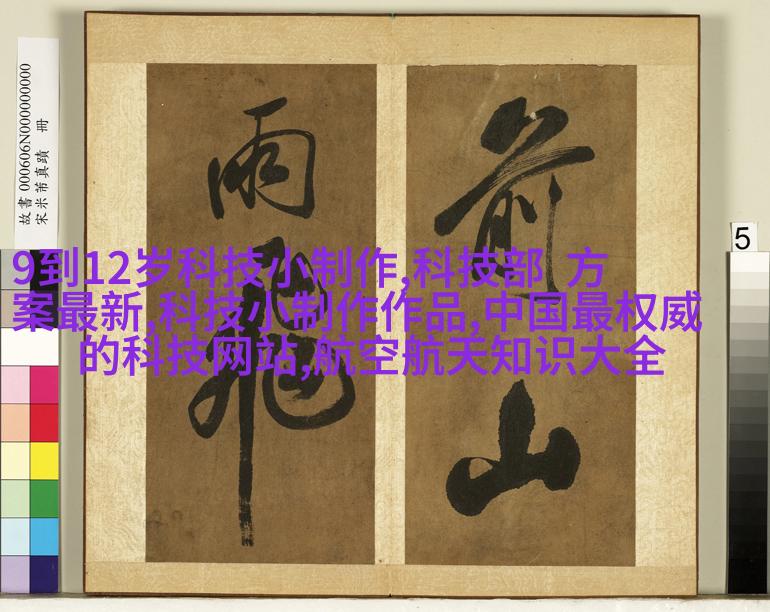 故書 000606N000000000
宋米芾真蹟 冊
前山
雨飛
5
9到12岁科技小制作,科技部 方
案最新,科技小制作作品,中国最权威
的科技网站,航空航天知识大全